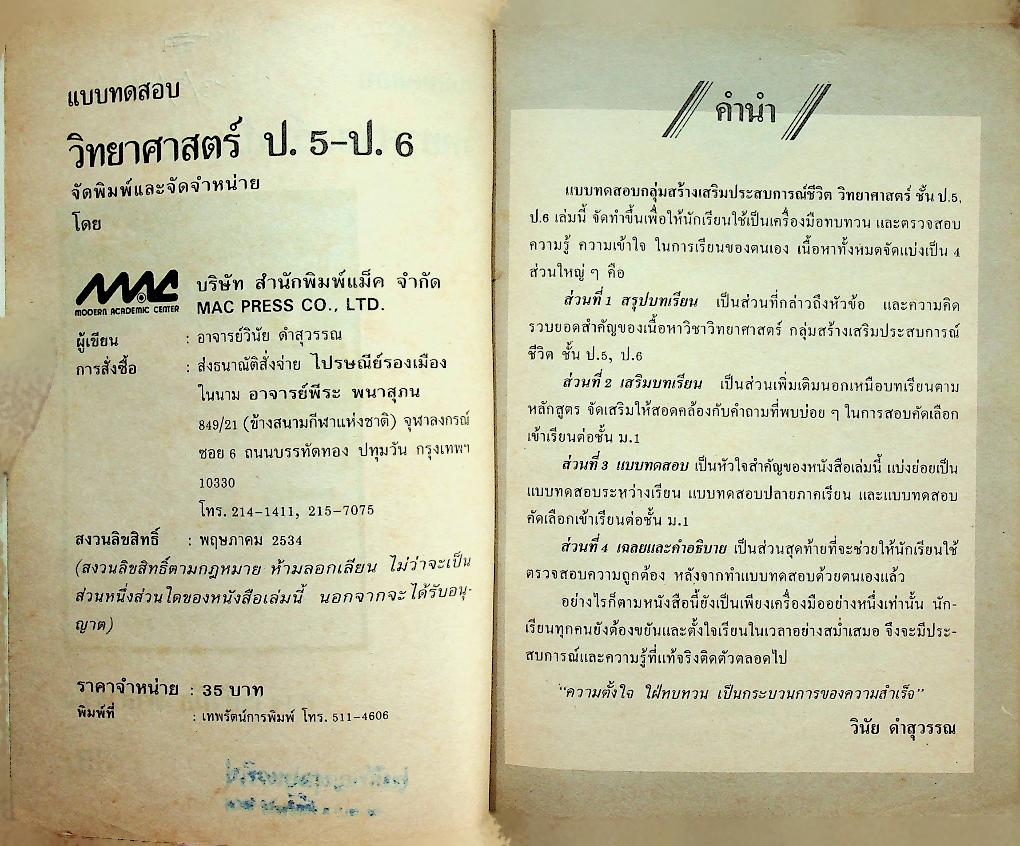 แบบทดสอบ
วิทยาศาสตร์ ป. 5-ป. 6
จัดพิมพ์และจัดจำหน่าย
โดย
MAC
MODERN ACADEMIC CENTER
บริษัท สำนักพิมพ์แม็ค จำกัด
MAC PRESS CO., LTD.
ผู้เขียน : อาจารย์วินัย ดำสุวรรณ
การสั่งซื้อ : ส่งธนาณัติสั่งจ่าย ไปรษณีย์รองเมือง
ในนาม อาจารย์พีระ พนาสุภน
849/21 (ข้างสนามกีฬาแห่งชาติ) จุฬาลงกรณ์
ซอย 6 ถนนบรรทัดทอง ปทุมวัน กรุงเทพฯ
10330
โทร. 214-1411, 215-7075
สงวนลิขสิทธิ์ : พฤษภาคม 2534
(สงวนลิขสิทธิ์ตามกฎหมาย ห้ามลอกเลียน ไม่ว่าจะเป็น
ส่วนหนึ่งส่วนใดของหนังสือเล่มนี้ นอกจากจะได้รับอนุ-
ญาต)
ราคาจำหน่าย : 35 บาท
พิมพ์ที่ : เทพรัตน์การพิมพ์ โทร. 511-4606
คำนำ
แบบทดสอบกลุ่มสร้างเสริมประสบการณ์ชีวิต วิทยาศาสตร์ ชั้น ป.5,
ป.6 เล่มนี้ จัดทำขึ้นเพื่อให้นักเรียนใช้เป็นเครื่องมือทบทวน และตรวจสอบ
ความรู้ ความเข้าใจ ในการเรียนของตนเอง เนื้อหาทั้งหมดจัดแบ่งเป็น 4
ส่วนใหญ่ ๆ คือ
ส่วนที่ 1 สรุปบทเรียน เป็นส่วนที่กล่าวถึงหัวข้อ และความคิด
รวบยอดสำคัญของเนื้อหาวิชาวิทยาศาสตร์ กลุ่มสร้างเสริมประสบการณ์
ชีวิต ชั้น ป.5, ป.6
ส่วนที่ 2 เสริมบทเรียน เป็นส่วนเพิ่มเติมนอกเหนือบทเรียนตาม
หลักสูตร จัดเสริมให้สอดคล้องกับคำถามที่พบบ่อย ๆ ในการสอบคัดเลือก
เข้าเรียนต่อชั้น ม.1
ส่วนที่ 3 แบบทดสอบ เป็นหัวใจสำคัญของหนังสือเล่มนี้ แบ่งย่อยเป็น
แบบทดสอบระหว่างเรียน แบบทดสอบปลายภาคเรียน และแบบทดสอบ
คัดเลือกเข้าเรียนต่อชั้น ม.1
ส่วนที่ 4 เฉลยและคำอธิบาย เป็นส่วนสุดท้ายที่จะช่วยให้นักเรียนใช้
ตรวจสอบความถูกต้อง หลังจากทำแบบทดสอบด้วยตนเองแล้ว
อย่างไรก็ตามหนังสือนี้ยังเป็นเพียงเครื่องมืออย่างหนึ่งเท่านั้น นัก-
เรียนทุกคนยังต้องขยันและตั้งใจเรียนในเวลาอย่างสม่ำเสมอ จึงจะมีประ-
สบการณ์และความรู้ที่แท้จริงติดตัวตลอดไป
"ความตั้งใจ ใฝ่ทบทวน เป็นกระบวนการของความสำเร็จ"
วินัย ดำสุวรรณ